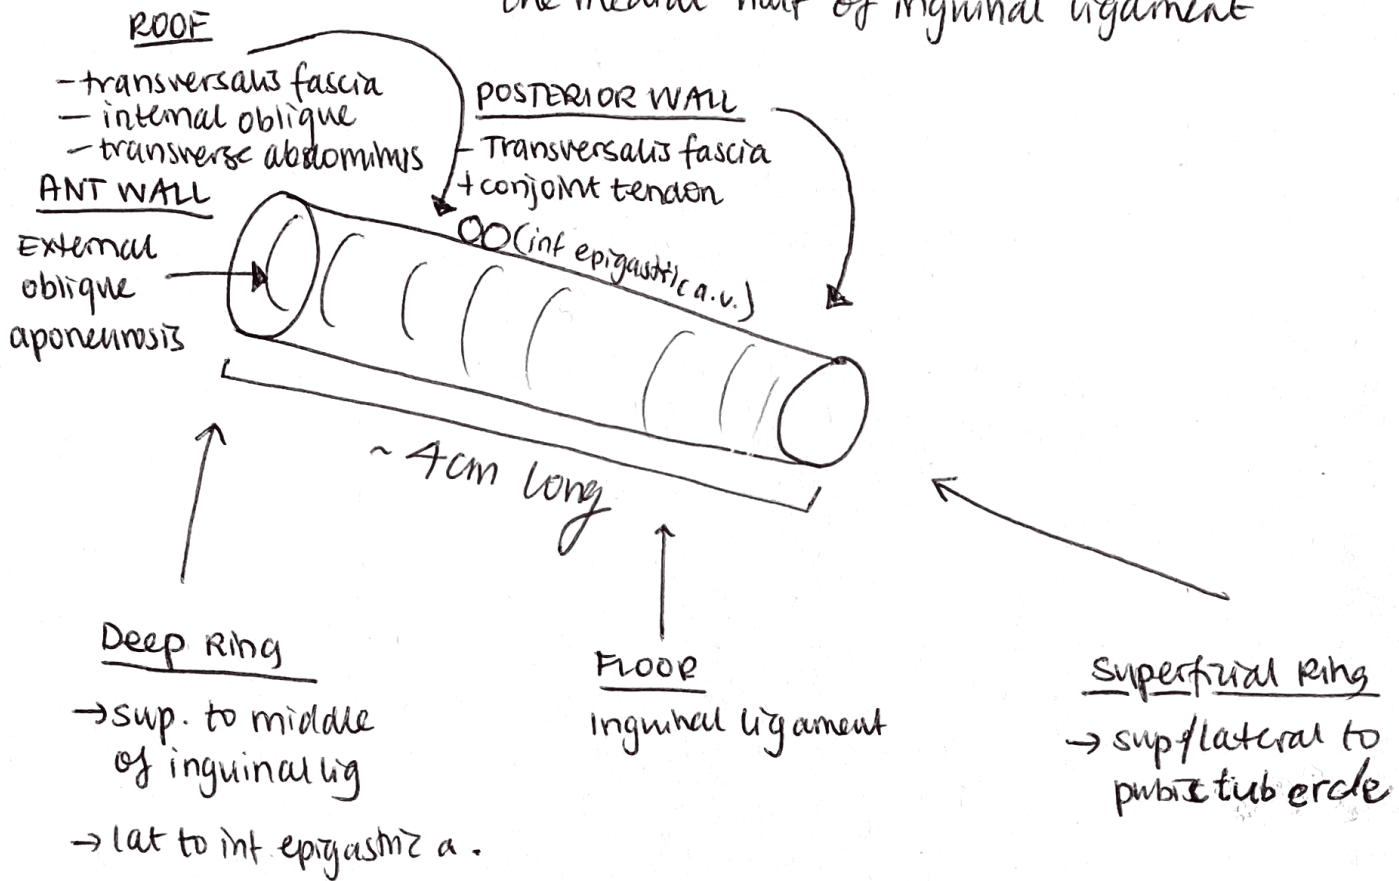 the medial half of inguinal ligament
ROOF
- transversalis fascia
- internal oblique
- transverse abdominis
POSTERIOR WALL
- Transversalis fascia
+ conjoint tendon
ANT WALL
External
oblique
aponeurosis
(inf epigastric a.v.)
~ 4cm long
Deep Ring
→ sup. to middle
of inguinal lig
→ lat to inf epigastric a.
FLOOR
inguinal ligament
Superficial Ring
→ sup/lateral to
pubic tubercle